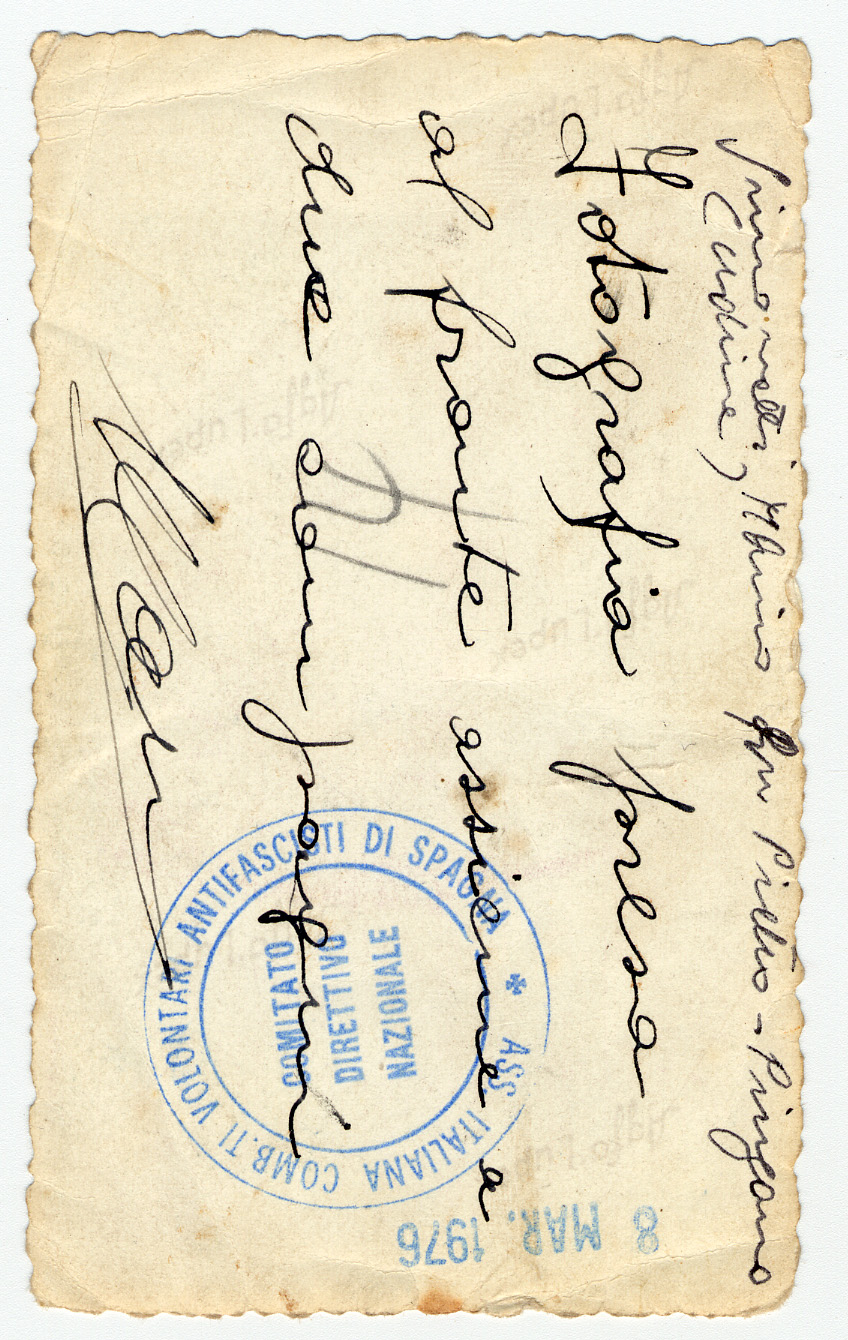 Marino fu Pietro - Pinzano
(Udine)
Fotografia presa
al fronte assieme a
due compagni
ASS. ITALIANA COMB.TI VOLONTARI ANTIFASCISTI DI SPAGNA
COMITATO
DIRETTIVO
NAZIONALE
8 MAR. 1976